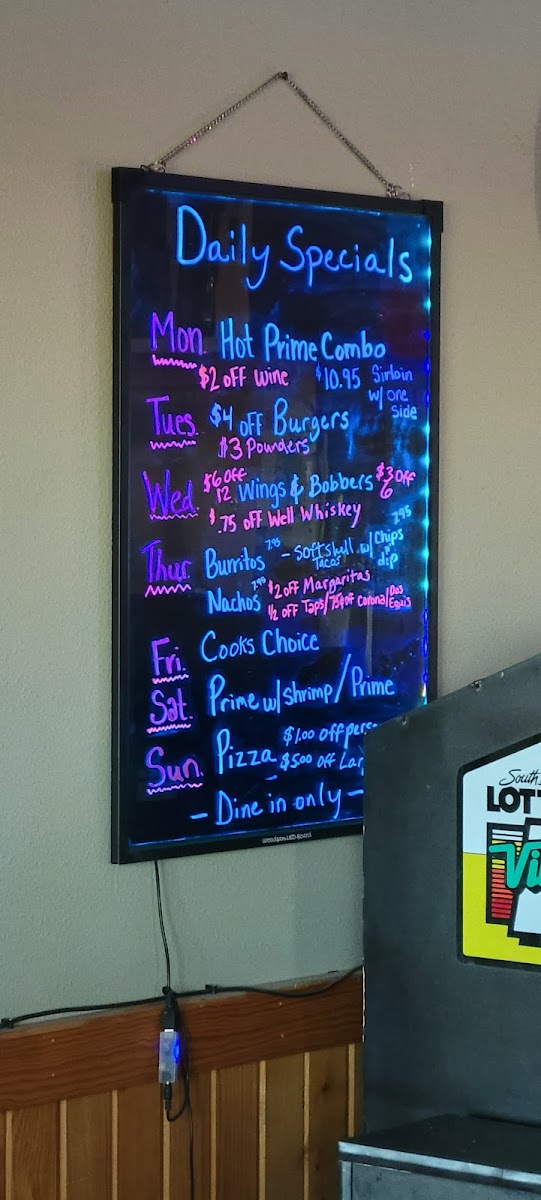 Daily Specials
Mon Hot Prime Combo
$2 off wine $10.95 Sirloin
w/ one
side
Tues $4 off Burgers
$3 Pounders
Wed $6 off 12 Wings & Bobbers $3 off 6
$.75 off Well Whiskey
Thur Burritos 7.95 - Softshell Tacos w/ Chips n dip 7.95
Nachos 7.95 $2 off Margaritas
1/2 off Taps/75¢ off corona/Dos Equis
Fri Cooks Choice
Sat Prime w/ shrimp/Prime
Sun Pizza $1.00 off pers
$5.00 off Lar
- Dine in only -
South
LOT
Vi